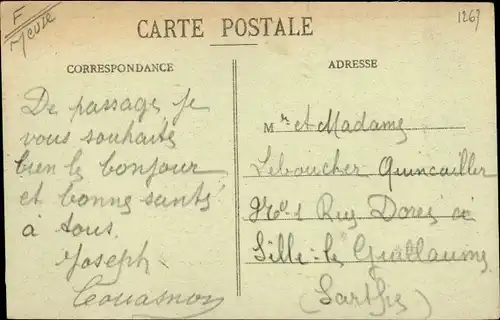 F
Meuse
1263
CARTE POSTALE
CORRESPONDANCE
ADRESSE
De passage je
vous souhaite
bien le bonjour
et bonne santé
à tous.
Joseph
Mr et Madame
Leboucher Quincailler
Rue Dorée à
Sillé-le Guillaume
(Sarthe)